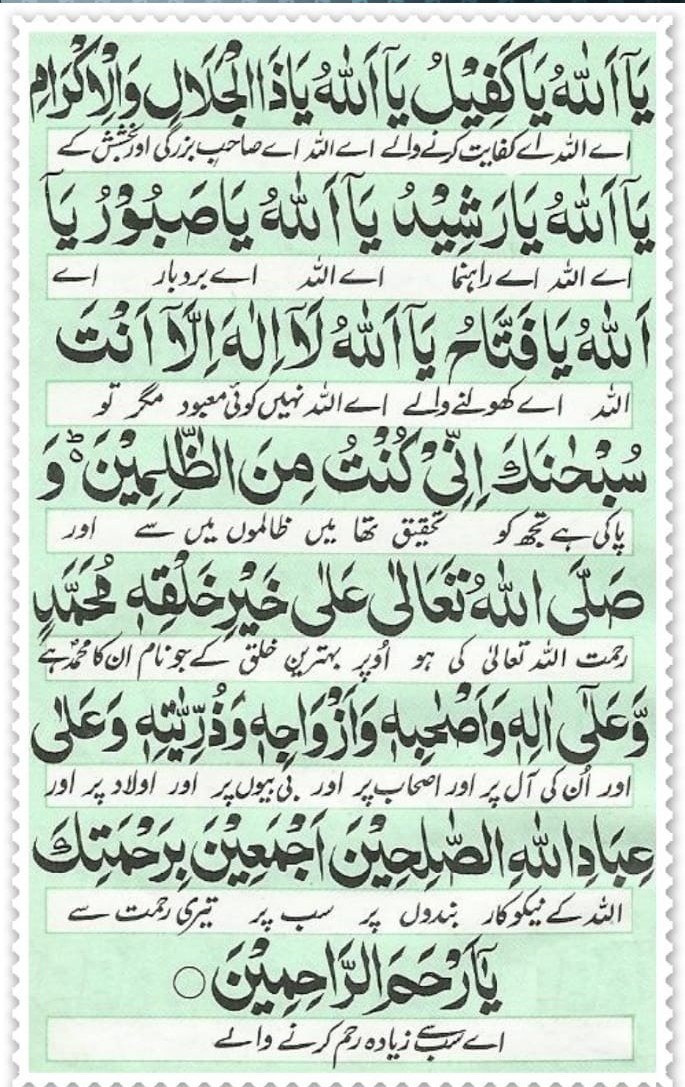 يَآ اَللهُ يَا كَفِيْلُ يَآ اَللهُ يَا ذَا الْجَلَالِ وَالْاِكْرَامِ
اے اللہ اے کفایت کرنے والے اے اللہ اے صاحب بزرگی اور بخشش کے
يَآ اَللهُ يَا رَشِيْدُ يَآ اَللهُ يَا صَبُوْرُ يَآ
اے اللہ اے راہنما اے اللہ اے بردبار اے
اَللهُ يَا فَتَّاحُ يَآ اَللهُ لَآ اِلٰهَ اِلَّآ اَنْتَ
اللہ اے کھولنے والے اے اللہ نہیں کوئی معبود مگر تو
سُبْحٰنَكَ اِنِّيْ كُنْتُ مِنَ الظّٰلِمِيْنَ ؕ وَ
پاکی ہے تجھ کو تحقیق تھا میں ظالموں میں سے اور
صَلَّى اللهُ تَعَالٰى عَلٰى خَيْرِ خَلْقِهٖ مُحَمَّدٍ
رحمت اللہ تعالیٰ کی ہو اُوپر بہترین خلق کے جو نام ان کا محمدؐ ہے
وَّعَلٰٓى اٰلِهٖ وَاَصْحٰبِهٖ وَاَزْوَاجِهٖ وَذُرِّيّٰتِهٖ وَعَلٰى
اور اُن کی آل پر اور اصحاب پر اور بی بیوں پر اور اولاد پر اور
عِبَادِ اللهِ الصّٰلِحِيْنَ اَجْمَعِيْنَ بِرَحْمَتِكَ
اللہ کے نیکوکار بندوں پر سب پر تیری رحمت سے
يَآ اَرْحَمَ الرَّاحِمِيْنَ ○
اے سب سے زیادہ رحم کرنے والے